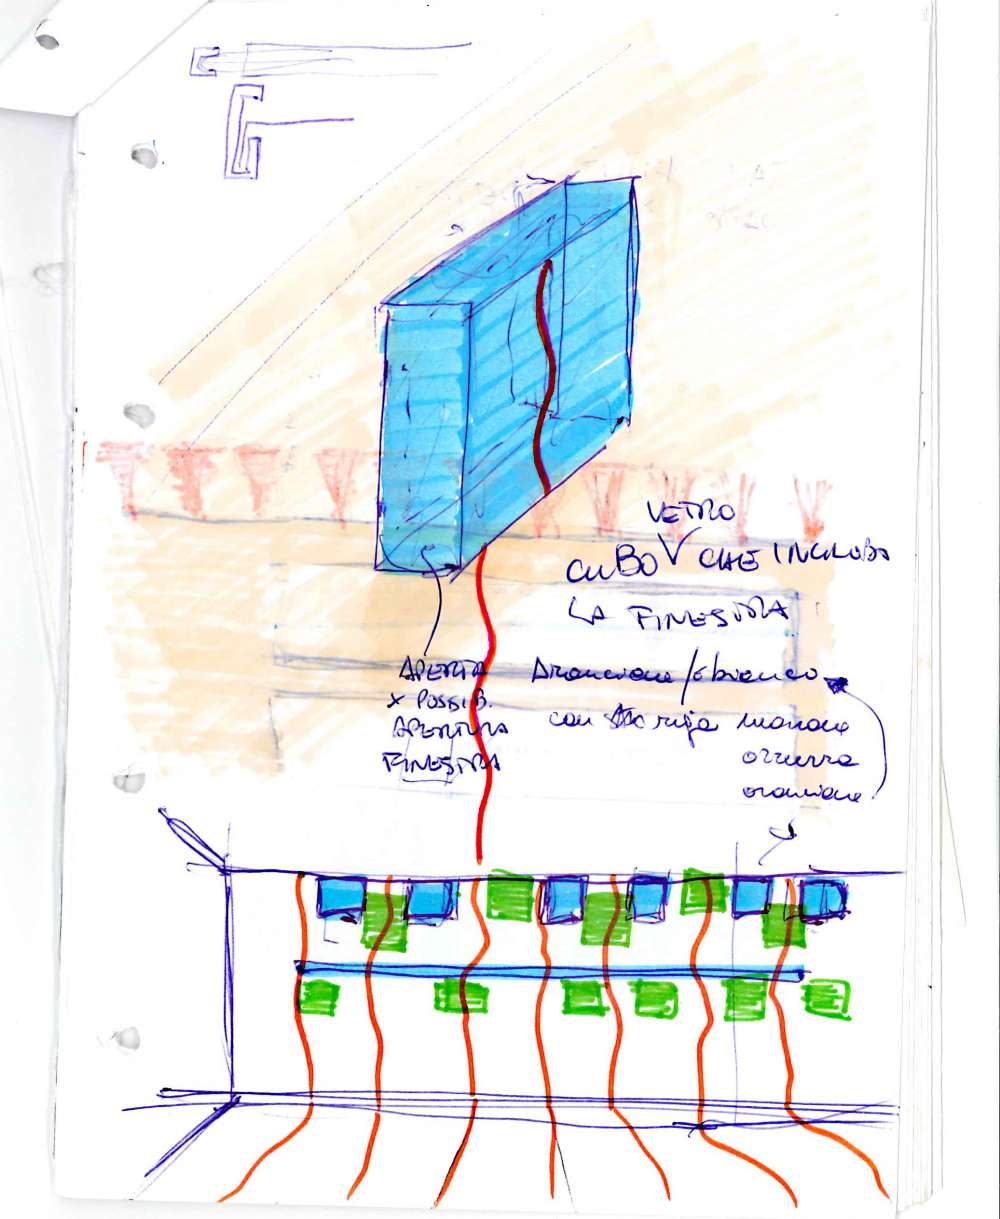 VETRO
CUBO V CHE INGLOBA
LA FINESTRA
APERTA
X POSSIB.
APERTURA
FINESTRA
Arancione / bianco
con riga marrone
azzurra
arancione